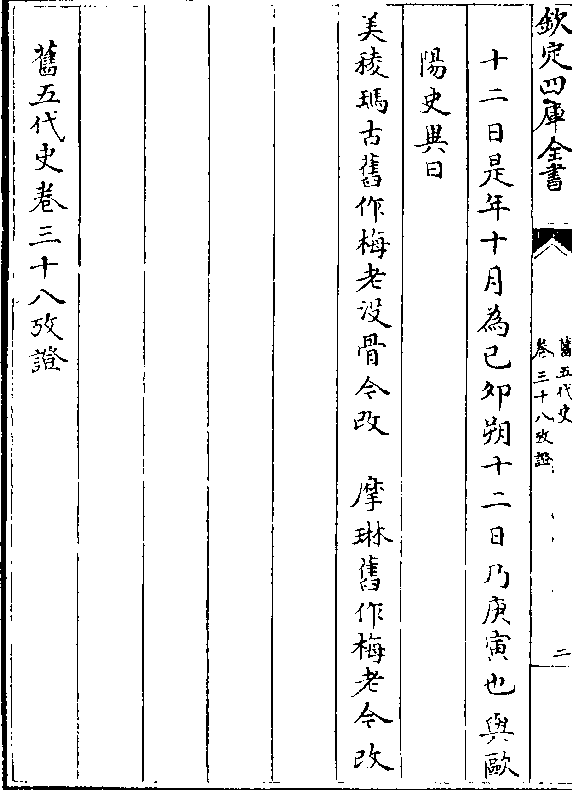 欽定四庫全書
舊五代史
卷三十八攷證
二
十二日是年十月為己卯朔十二日乃庚寅也與歐
陽史異日
美稜瑪古舊作梅老没骨今改　摩琳舊作梅老今改
舊五代史卷三十八攷證